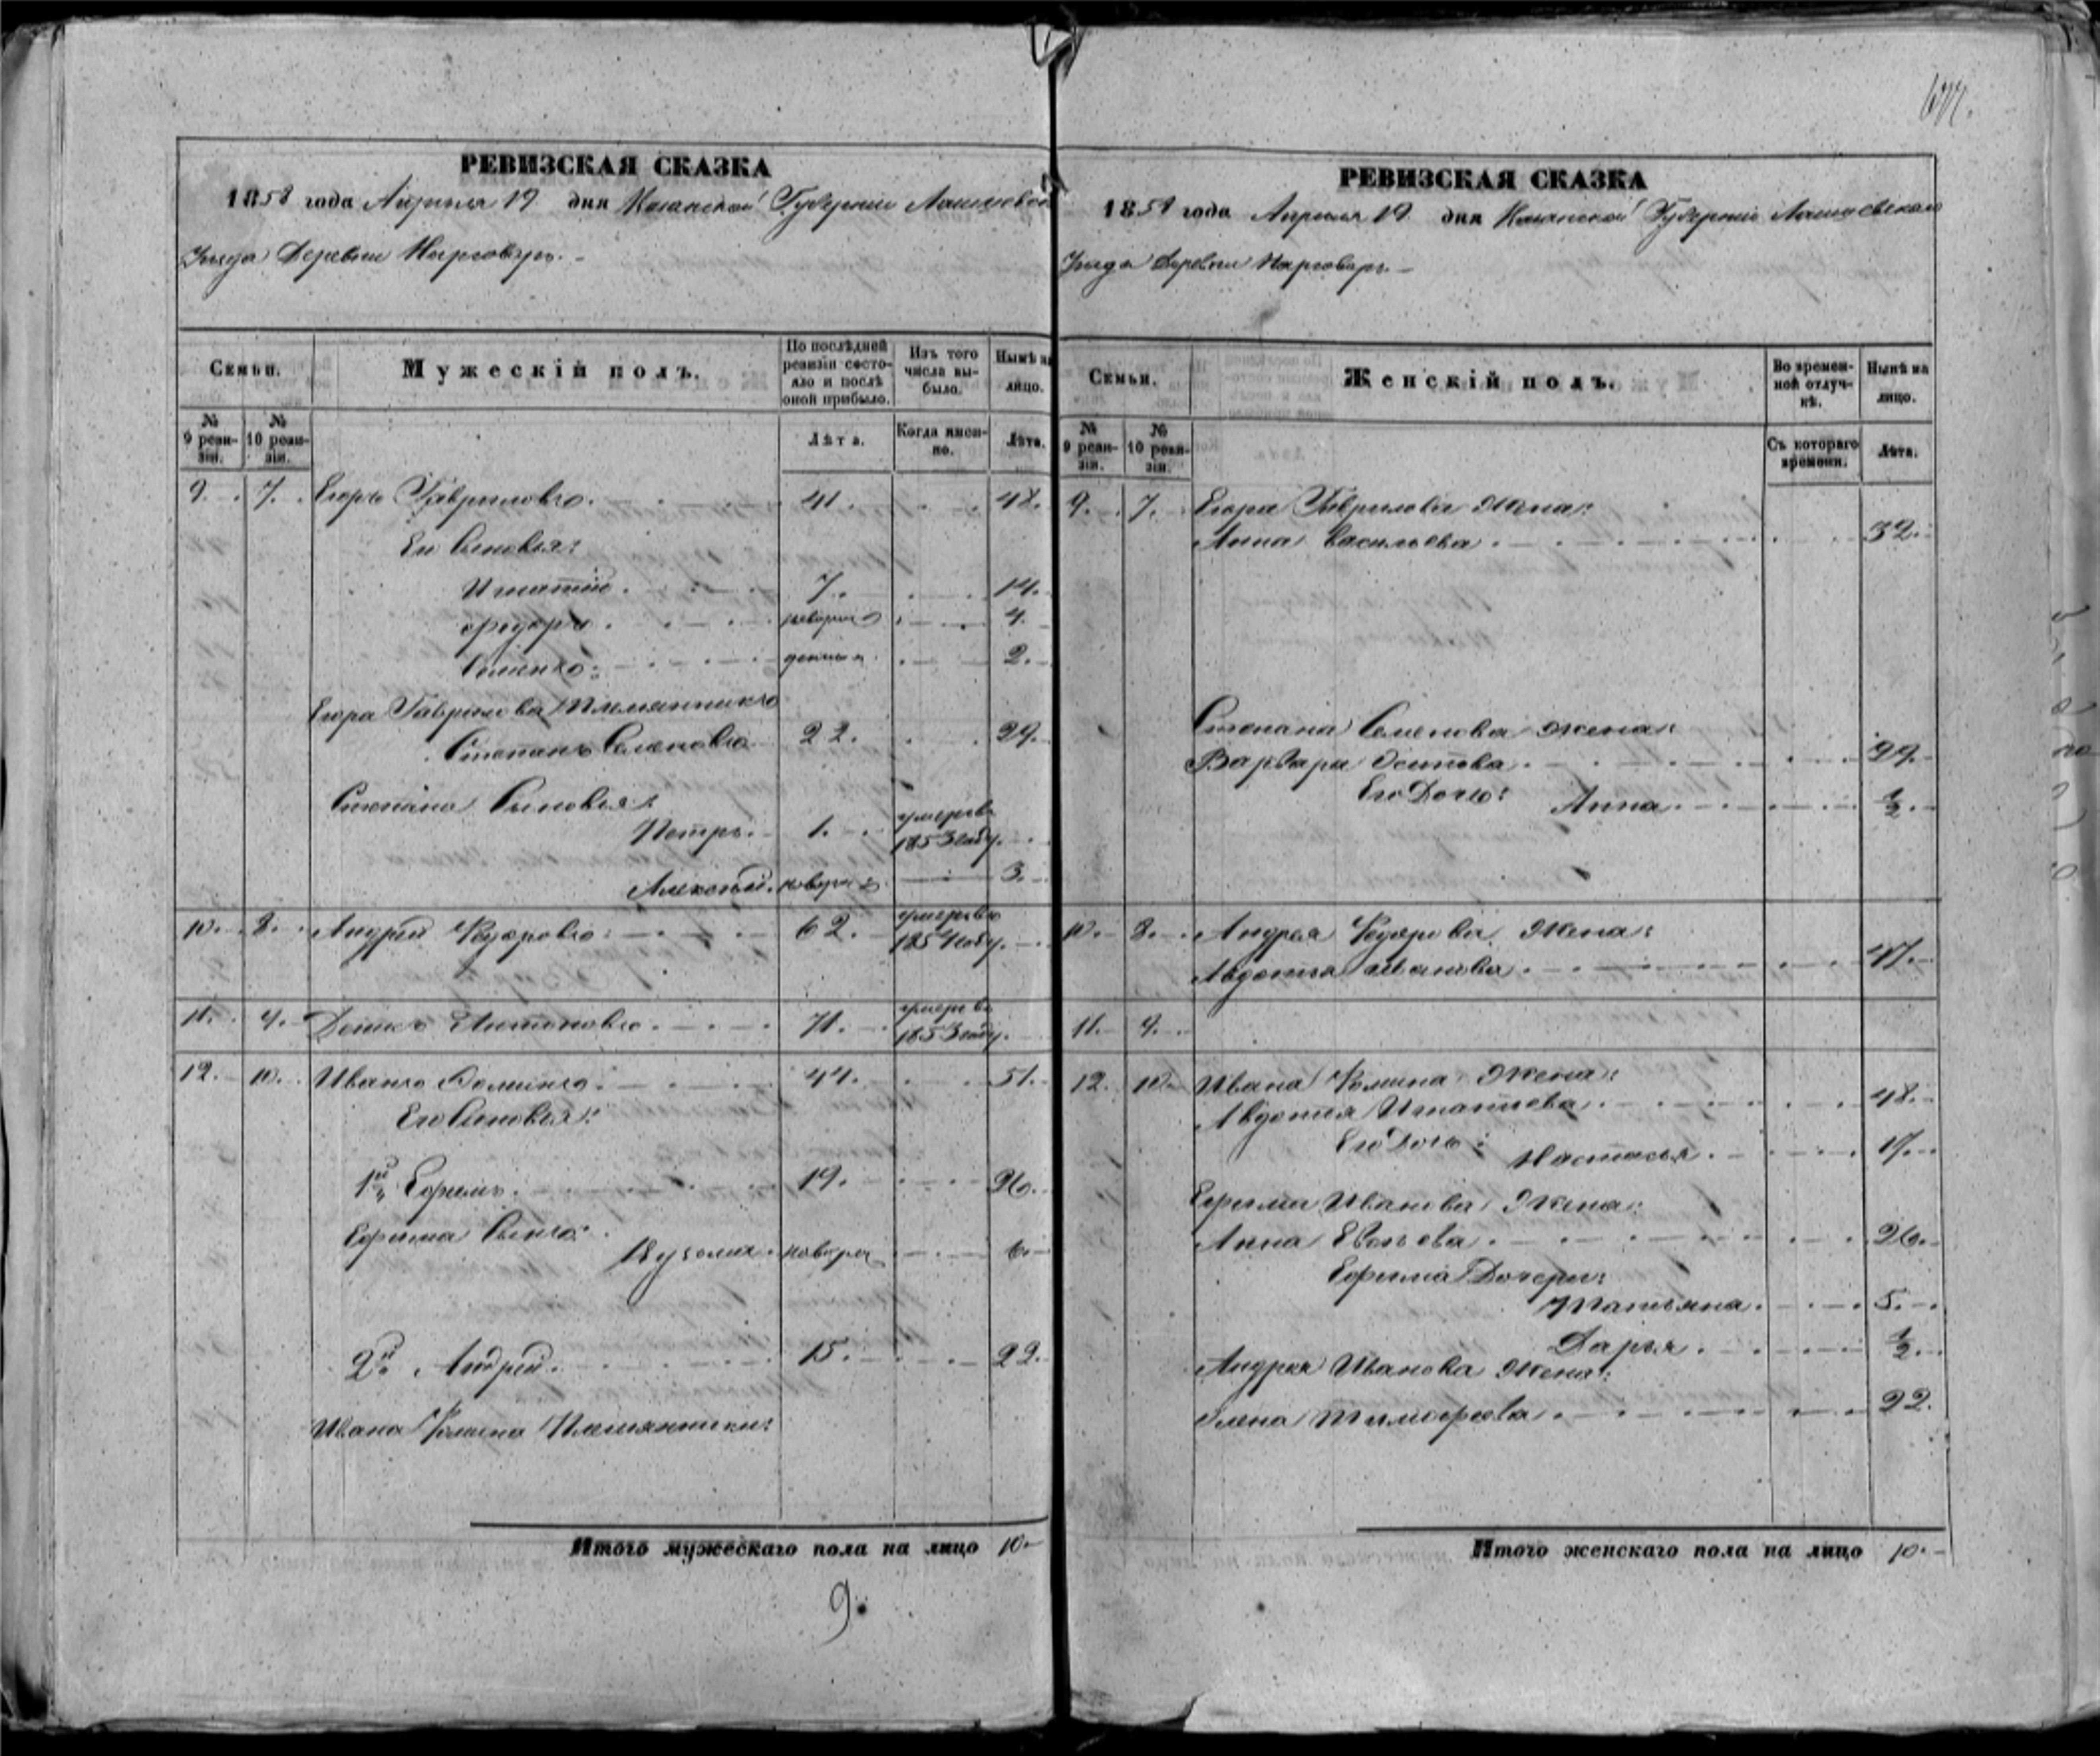 РЕВИЗСКАЯ СКАЗКА
1858 года Апреля 19 дня Казанской Губернии Лаишевско
Уезда Деревни
Семьи.
Мужескій полъ.
По послѣдней ревизіи состояло и послѣ оной прибыло.
Изъ того числа выбыло.
Нынѣ на лицо.
№ 9 ревизіи.
№ 10 ревизіи.
Лѣта.
Когда именно.
Лѣта.
9. 7. Егоръ Гавриловъ. 41. 48.
Его Сыновья:
Игнатій. 7. 14.
Федоръ. 4.
Семенъ. 2.
Егора Гаврилова Племянникъ
Степанъ Семеновъ 22. 29.
Степана Сыновья:
Петръ. 1. умеръ въ 1853 году.
Алексѣй. новорож 3.
10. 8. Андрей Федоровъ. 62. умеръ въ 1854 году.
11. 9. Денисъ Антоновъ. 71. умеръ въ 1853 году.
12. 10. Иванъ Фоминъ. 44. 51.
Его Сыновья:
1й Ефремъ. 19. 26.
Ефрема Сынъ:
Кузьма. новорож 6.
2й Андрей. 15. 22.
Ивана Фомина Племянники:
Итого мужескаго пола на лицо 10.
9.
РЕВИЗСКАЯ СКАЗКА
1858 года Апреля 19 дня Казанской Губерніи Лаишевскаго
Уезда Деревни
Семьи.
Женскій полъ.
Во временной отлучкѣ.
Нынѣ на лицо.
№ 9 ревизіи.
№ 10 ревизіи.
Съ котораго времени.
Лѣта.
9. 7. Егора Гаврилова Жена:
Анна Васильева. 32.
Степана Семенова жена:
Варвара Осипова. 29.
Его Дочь: Анна. 1/2.
10. 8. Андрея Федорова Жена:
Авдотья Иванова. 47.
11. 9.
12. 10. Ивана Фомина Жена:
Авдотья Игнатьева. 48.
Его Дочь: Настасья. 17.
Ефрема Иванова Жена:
Анна 26.
Ефрема Дочери:
Татьяна. 5.
Дарья. 1/2.
Андрея Иванова Жена:
Елена Тимофеева. 22.
Итого женскаго пола на лицо 10.